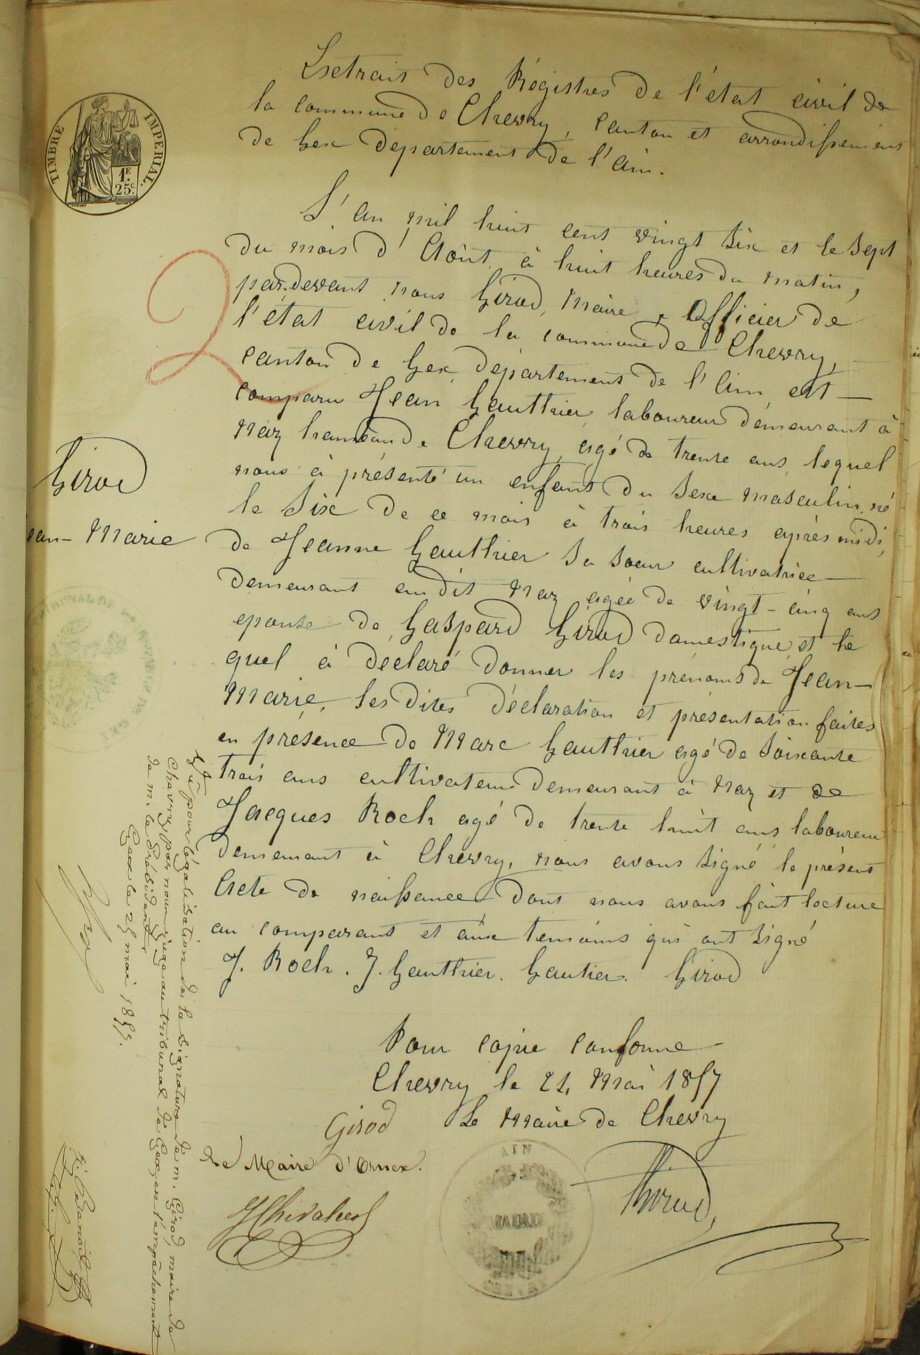 Extrait des Régistres de l'état civil de
la commune de Chevry, canton et arrondissement
de Gex département de l'ain.
TIMBRE IMPERIAL.
1F.
25c.
L'an mil huit cent vingt six et le sept
du mois d'Août à huit heures du matin,
par-devant nous Girod, Maire, Officier de
l'état civil de la commune de Chevry,
canton de Gex département de l'ain, est
comparu Jean Gauthier laboureur démeurant à
Naz hameau de Chevry, agé de trente ans, lequel
nous à présenté un enfant du sexe masculin, né
le Six de ce mois à trois heures après midi,
de Jeanne Gauthier sa soeur cultivatrice
demeurant au dit Naz agée de vingt-cinq ans
epouse de Gaspard Girod domestique, et le
quel à déclaré donner les prénoms de Jean-
Marie, les dites déclaration et présentation faites
en présence de Marc Gauthier agé de soixante
trois ans cultivateur demeurant à Naz et de
Jacques Roch agé de trente huit ans laboureur
demeurant à Chevry, nous avons signé le présent
Acte de naissance dont nous avons fait lecture
au comparant et aux temoins qui ont signé
J. Roch. J. Gauthier. Gautier. Girod
Girod
ean-Marie
Pour copie conforme
Chevry le 21 Mai 1857
Le Maire de Chevry
Girod
Le Maire d'Ornex.
Girod
Vu pour légalisation de la signature de M. Girod, maire de
Chevry, par nous juge au tribunal de Gex, en l'empêchement
de M. le Président,
Gex le 25 mai 1857.